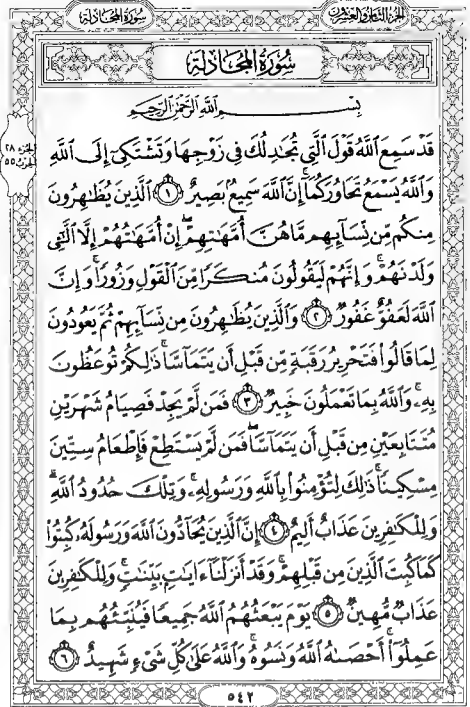 الجزء الثامن والعشرون
سورة المجادلة
سُورَةُ المُجَادلة
بِسْمِ اللَّهِ الرَّحْمَٰنِ الرَّحِيمِ
الجزء ٢٨
الحزب ٥٥
قَدْ سَمِعَ ٱللَّهُ قَوْلَ ٱلَّتِي تُجَٰدِلُكَ فِي زَوْجِهَا وَتَشْتَكِيٓ إِلَى ٱللَّهِ
وَٱللَّهُ يَسْمَعُ تَحَاوُرَكُمَآۚ إِنَّ ٱللَّهَ سَمِيعٌۢ بَصِيرٌ ١ ٱلَّذِينَ يُظَٰهِرُونَ
مِنكُم مِّن نِّسَآئِهِم مَّا هُنَّ أُمَّهَٰتِهِمْۖ إِنْ أُمَّهَٰتُهُمْ إِلَّا ٱلَّٰٓـِٔي
وَلَدْنَهُمْۚ وَإِنَّهُمْ لَيَقُولُونَ مُنكَرًا مِّنَ ٱلْقَوْلِ وَزُورًاۚ وَإِنَّ
ٱللَّهَ لَعَفُوٌّ غَفُورٌ ٢ وَٱلَّذِينَ يُظَٰهِرُونَ مِن نِّسَآئِهِمْ ثُمَّ يَعُودُونَ
لِمَا قَالُوا۟ فَتَحْرِيرُ رَقَبَةٍ مِّن قَبْلِ أَن يَتَمَآسَّاۚ ذَٰلِكُمْ تُوعَظُونَ
بِهِۦۚ وَٱللَّهُ بِمَا تَعْمَلُونَ خَبِيرٌ ٣ فَمَن لَّمْ يَجِدْ فَصِيَامُ شَهْرَيْنِ
مُتَتَابِعَيْنِ مِن قَبْلِ أَن يَتَمَآسَّاۖ فَمَن لَّمْ يَسْتَطِعْ فَإِطْعَامُ سِتِّينَ
مِسْكِينًاۚ ذَٰلِكَ لِتُؤْمِنُوا۟ بِٱللَّهِ وَرَسُولِهِۦۚ وَتِلْكَ حُدُودُ ٱللَّهِۗ
وَلِلْكَٰفِرِينَ عَذَابٌ أَلِيمٌ ٤ إِنَّ ٱلَّذِينَ يُحَآدُّونَ ٱللَّهَ وَرَسُولَهُۥ كُبِتُوا۟
كَمَا كُبِتَ ٱلَّذِينَ مِن قَبْلِهِمْۚ وَقَدْ أَنزَلْنَآ ءَايَٰتٍۭ بَيِّنَٰتٍۚ وَلِلْكَٰفِرِينَ
عَذَابٌ مُّهِينٌ ٥ يَوْمَ يَبْعَثُهُمُ ٱللَّهُ جَمِيعًا فَيُنَبِّئُهُم بِمَا
عَمِلُوٓا۟ۚ أَحْصَىٰهُ ٱللَّهُ وَنَسُوهُۚ وَٱللَّهُ عَلَىٰ كُلِّ شَىْءٍ شَهِيدٌ ٦
٥٤٢